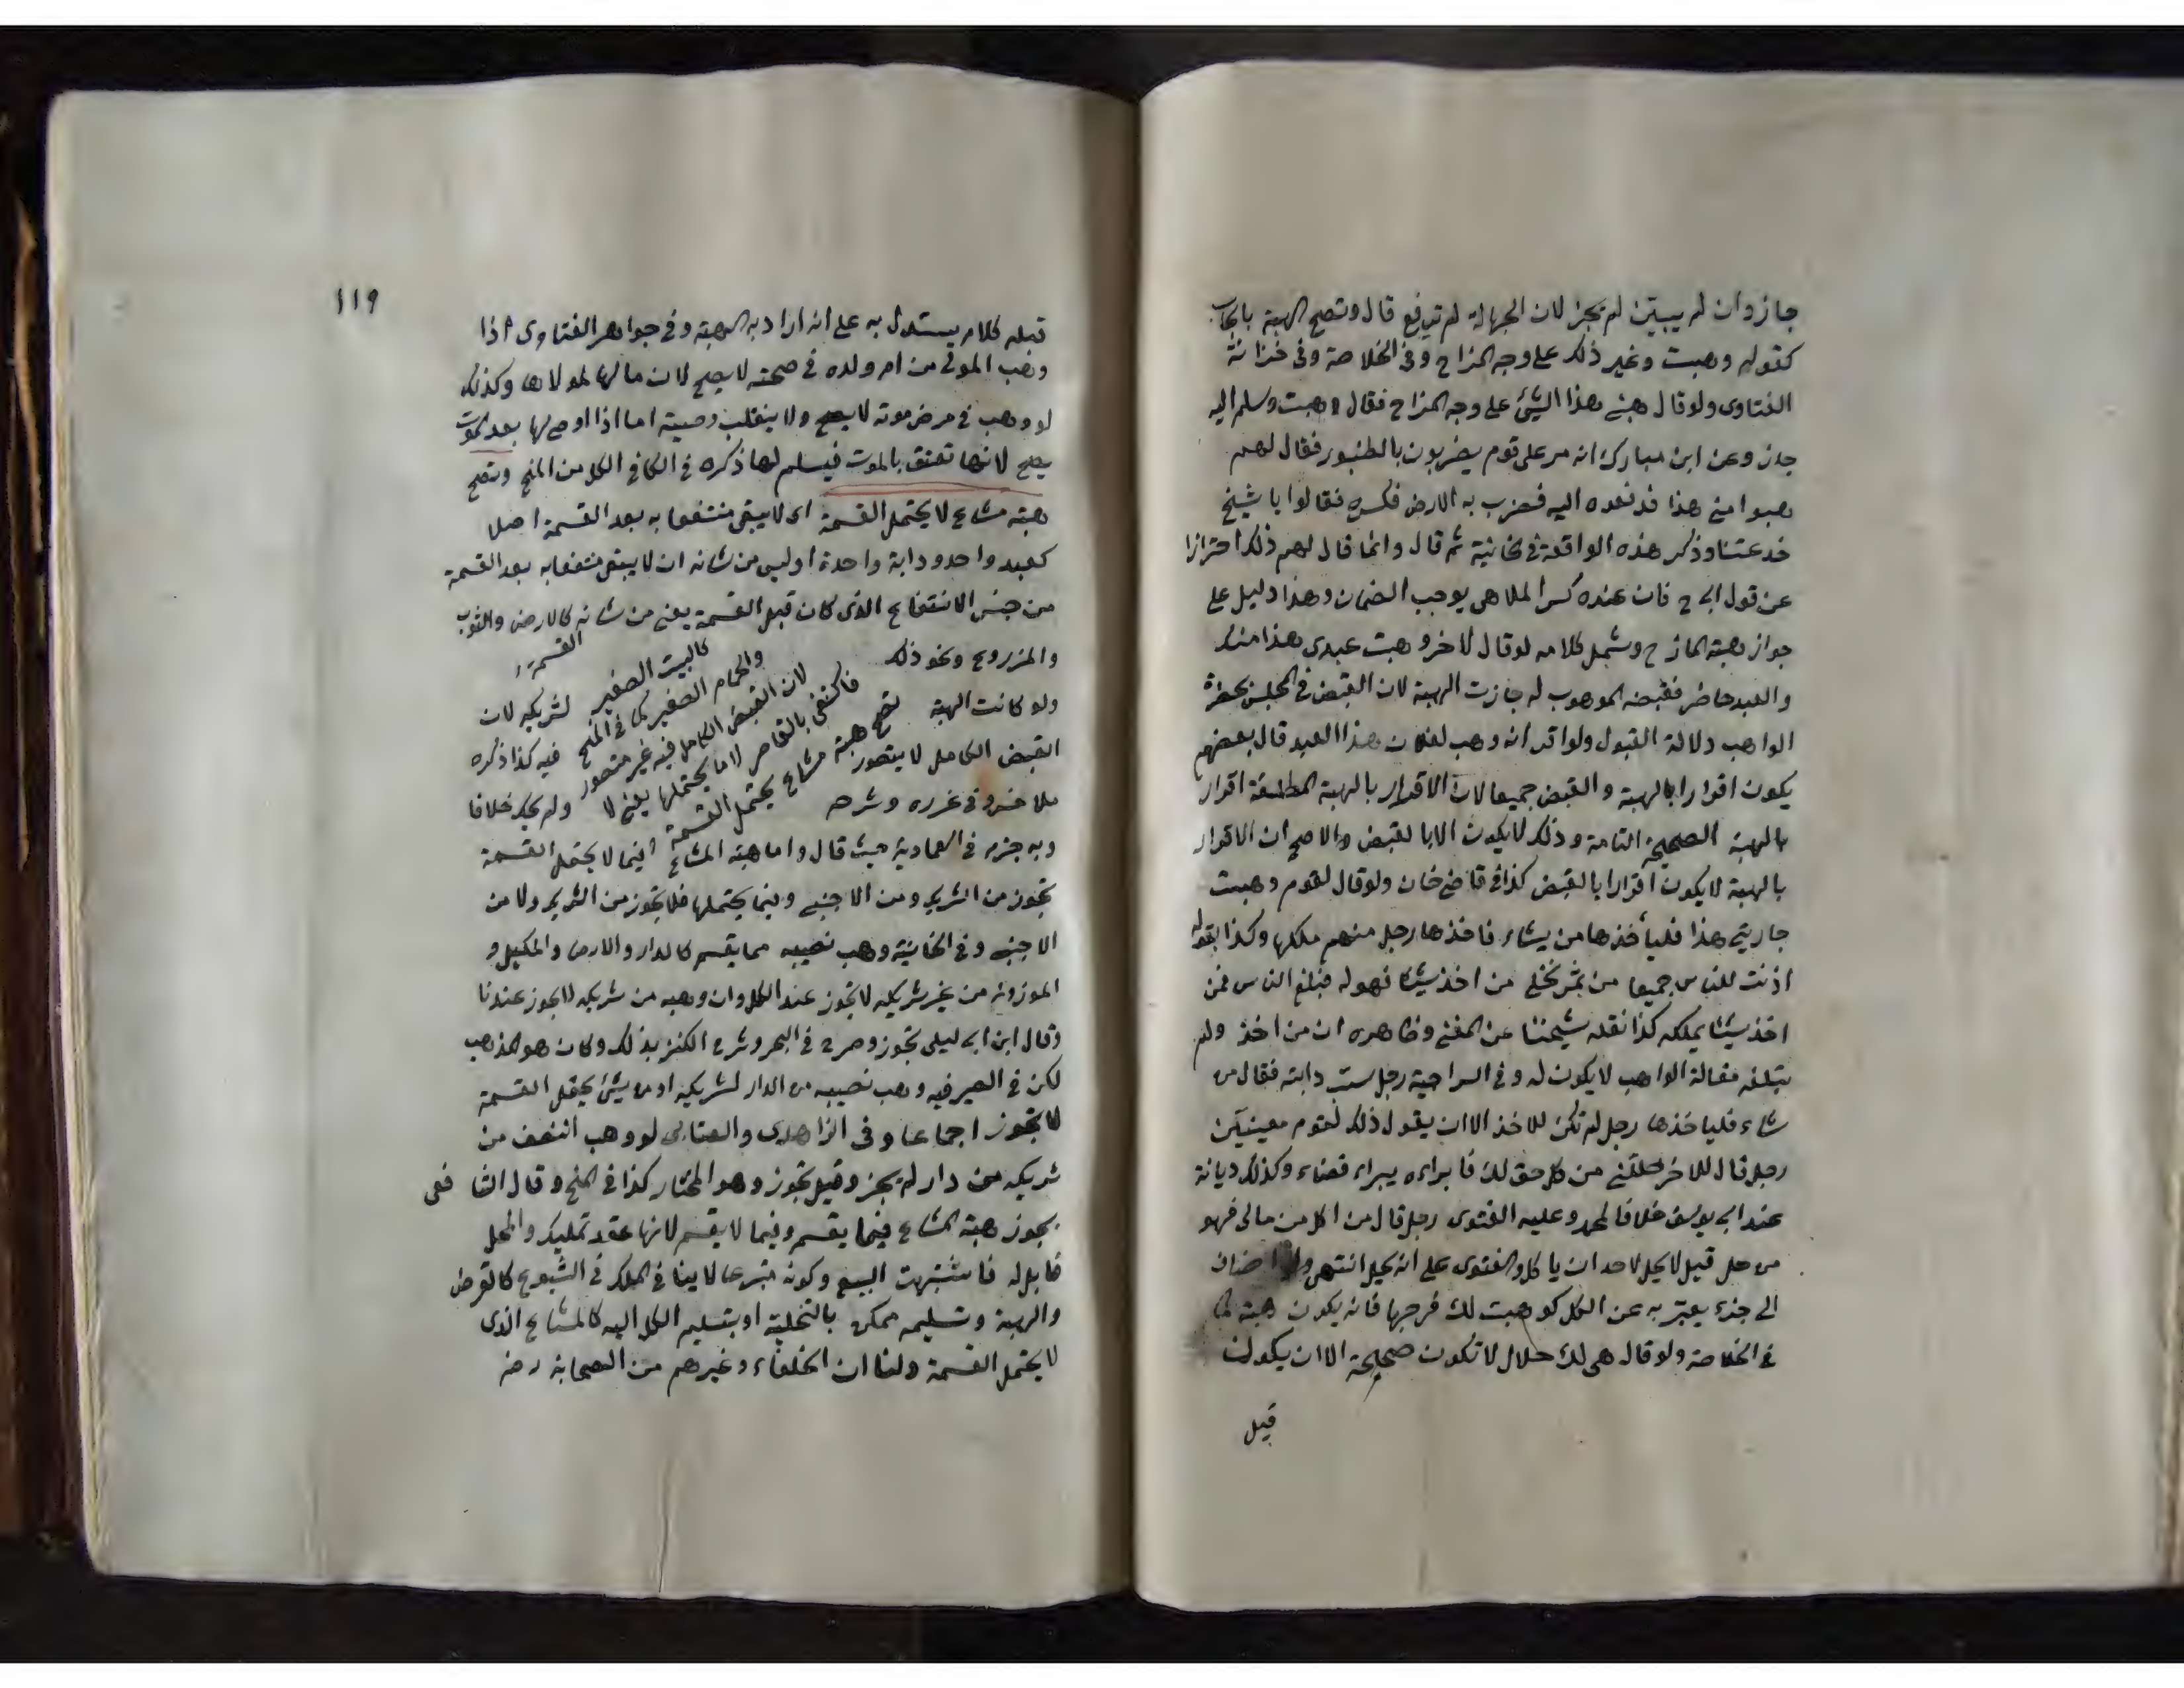 جاز وان لم يبين لم يجز لان الجهالة لم ترفع قال وتصح الهبة بايجاب
كقوله وهبت وغير ذلك على وجه المزاح وفي الخلاصة وفي خزانة
الفتاوى ولو قال هبني هذا الشئ على وجه المزاح فقال وهبت وسلم اليه
جاز وعن ابن مبارك انه مر على قوم يضربون بالطنبور فقال لهم
هبوا مني هذا فدفعوه اليه فضرب به الارض فكسره فقالوا يا شيخ
خدعتنا وذكر هذه الواقعة في الخانية ثم قال وانما قال لهم ذلك احترازا
عن قول ابي ح فان عنده كسر الملاهي يوجب الضمان وهذا دليل على
جواز هبة المازح وشمل كلامه لو قال لاخر وهبت عبدي هذا منك
والعبد حاضر فقبضه الموهوب له جازت الهبة لان القبض في المجلس بحضرة
الواهب دلالة القبول ولو اقر انه وهب لفلان هذا العبد قال بعضهم
يكون اقرارا بالهبة والقبض جميعا لان الاقرار بالهبة المطلقة اقرار
بالهبة الصحيحة التامة وذلك لا يكون الا بالقبض والاصح ان الاقرار
بالهبة لا يكون اقرارا بالقبض كذا في قاضي خان ولو قال لقوم وهبت
جاريتي هذا فليأخذها من يشاء فاخذها رجل منهم ملكها وكذا بقوله
اذنت للناس جميعا من ثمر نخلي من اخذ شيئا فهو له فبلغ الناس فمن
اخذ شيئا يملكه كذا نقله شيخنا عن المغني وظاهره ان من اخذ ولم
يبلغه مقالة الواهب لا يكون له وفي السراجية رجل سيب دابته فقال من
شاء فلياخذها رجل لم تكن للاخذ الا ان يقول ذلك لقوم معينين
رجل قال للاخر حللني من كل حق لك فابراءه يبراء قضاء وكذلك ديانة
عند ابي يوسف خلافا لمحمد وعليه الفتوى رجل قال من اكل من مالي فهو
من حل قيل لا يحل لاحد ان ياكل والفتوى على انه يحل انتهى اضاف
الى جزء يعبر به عن الكل كوهبت لك فرجها فانه يكون هبة كما
في الخلاصة ولو قال هي لك حلال لا تكون صحيحة الا ان يكون
قبل
١١٩
قبله كلام يستدل به على انه اراد به الهبة وفي جواهر الفتاوى اذا
وهب المولى من ام ولده في صحته لا يصح لان مالها لمولاها وكذلك
لو وهب في مرض موته لا يصح ولا ينقلب وصية اما اذا اوصى لها بعد الموت
يصح لانها تعتق بالموت فيسلم لها ذكره في الكافي الكل من المنح وتصح
هبة مشاع لا يحتمل القسمة اي لا يبقى منتفعا به بعد القسمة اصلا
كعبد واحد ودابة واحدة او ليس من شانه ان لا يبقى منتفعا به بعد القسمة
من جنس الانتفاع الذي كان قبل القسمة يعني من شانه كالارض والثوب
والمزروع ونحو ذلك
القسمة
كالبيت الصغير
والحمام الصغير كما في المنح
لان القبض الكامل فيه غير متصور
فاكتفى بالقاصر لا ما يحتملها يعني لا
تصح هبة مشاع يحتمل القسمة
ولو كانت الهبة لشريكه لان
القبض الكامل لا يتصور فيه كذا ذكره
ملا خسرو في غرره وشرحه ولم يحك خلافا
وبه جزم في العمادية حيث قال واما هبة المشاع فيما لا يحتمل القسمة
تجوز من الشريك ومن الاجنبي وفيما يحتملها فلا تجوز من الشريك ولا من
الاجنبي وفي الخانية وهب نصيبه مما يقسم كالدار والارض والمكيل و
الموزون من غير شريكه لا تجوز عند الكل وان وهبه من شريكه لا يجوز عندنا
وقال ابن ابي ليلى تجوز وصرح في البحر وشرح الكنز بذلك وكان هو المذهب
لكن في الصيرفيه وهب نصيبه من الدار لشريكه او من شئ يحتمل القسمة
لا تجوز اجماعا وفي الزاهدي والعتابي لو وهب النصف من
شريكه من دار لم يجز وقيل تجوز وهو المختار كذا في المنح وقال الشافعى
يجوز هبة المشاع فيما يقسم وفيما لا يقسم لانها عقد تمليك والمحل
قابل له فاشبهت البيع وكونه تبرعا لا ينافي الملك في الشيوع كالقرض
والهبة وتسليمه ممكن بالتخلية او بتسليم الكل اليه كالمشاع الذي
لا يحتمل القسمة ولنا ان الخلفاء وغيرهم من الصحابة رضه